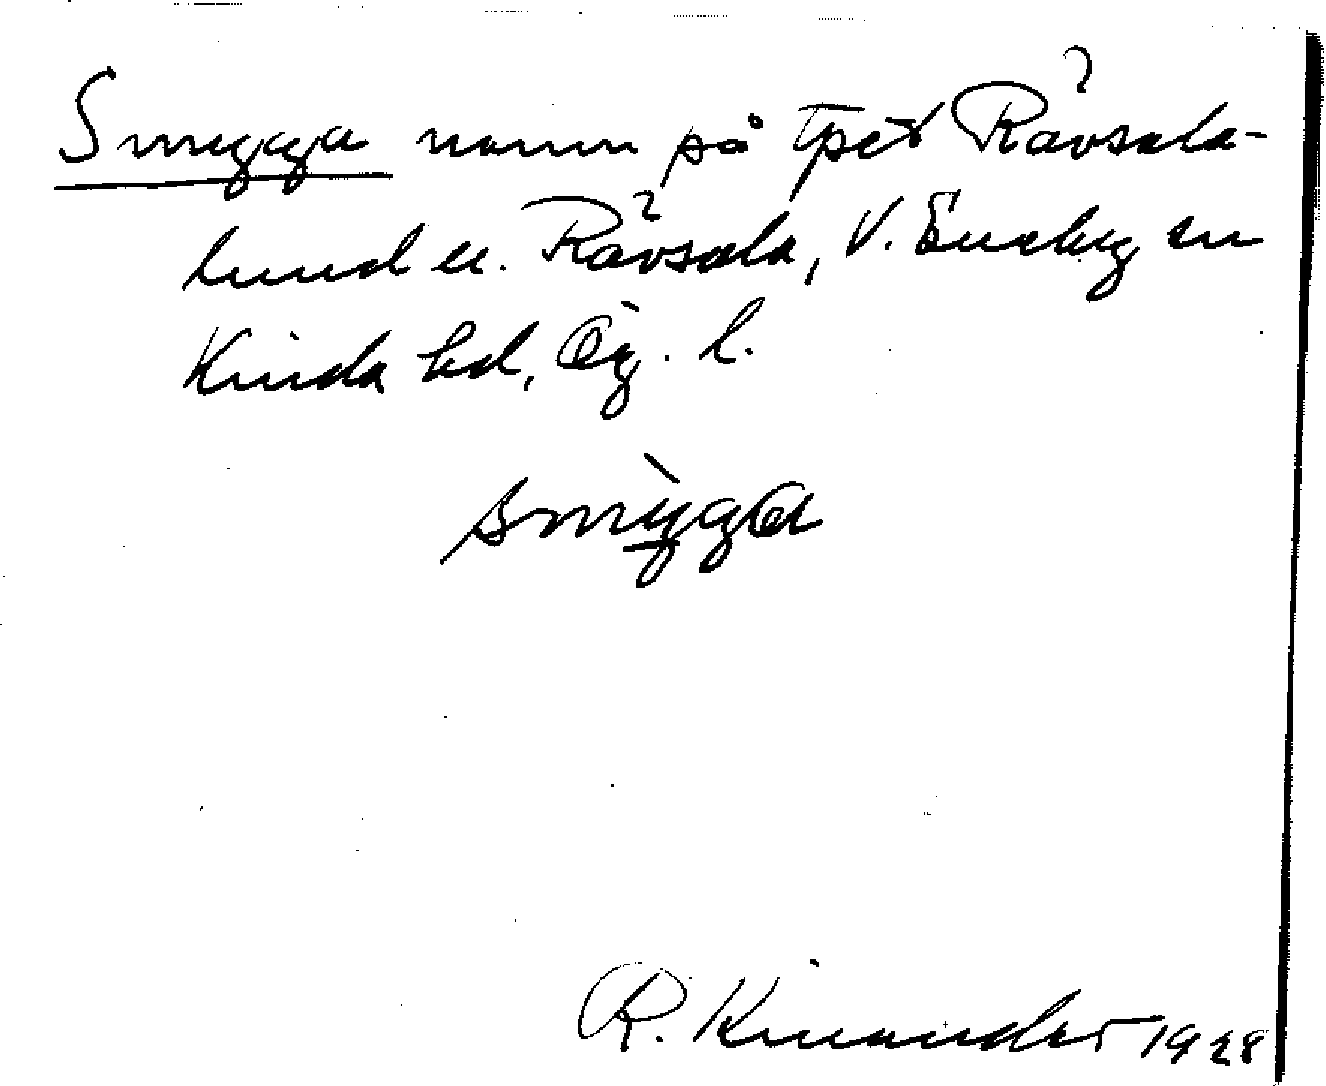 Smygga namn på tpet Rävsala-
lund u. Rävsala, V. Eneby sn
Kinda hd, Ög. l.
smygga
R. Kinander 1928